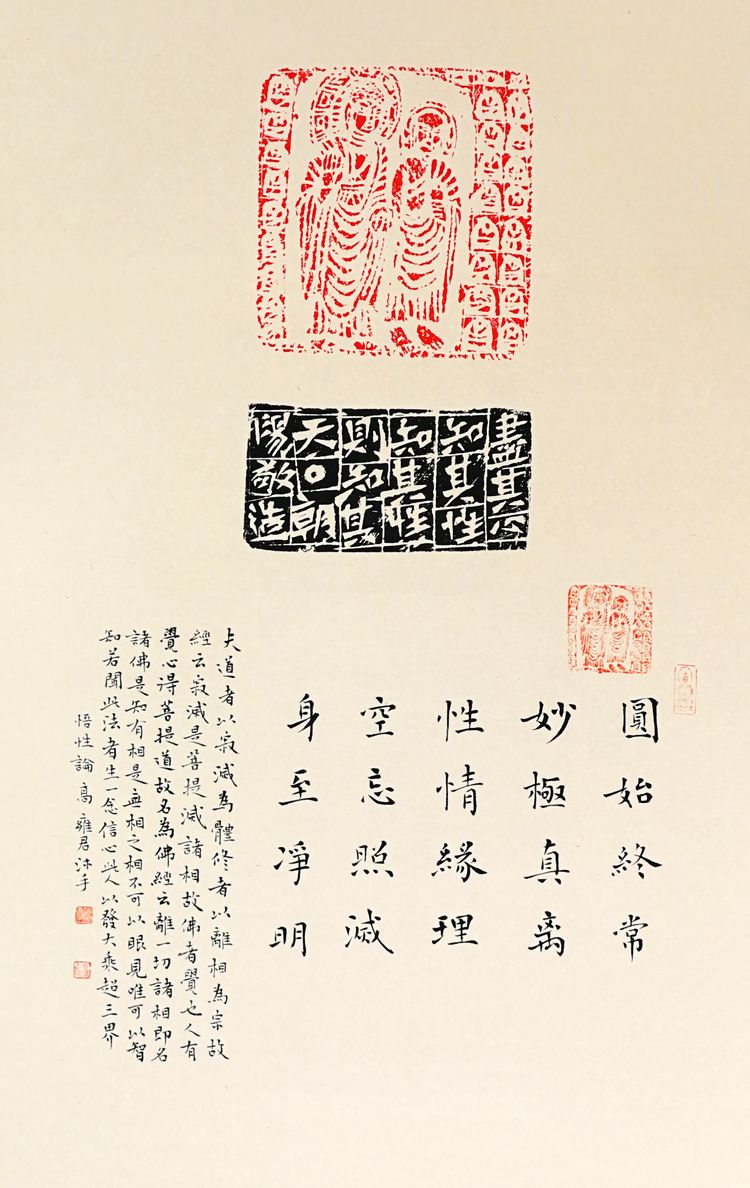 盡其心
知其性
知其性
則知其
天〇朝
陽敬造
圓始終常
妙極真离
性情緣理
空忘照滅
身至凈明
夫道者以寂滅為體修者以離相為宗故
經云寂滅是菩提滅諸相故佛者覺也人有
覺心得菩提道故名為佛經云離一切諸相即名
諸佛是知有相是無相之相不可以眼見唯可以智
知若聞此法者生一念信心此人以發大乘超三界
悟性論 高雍君沐手